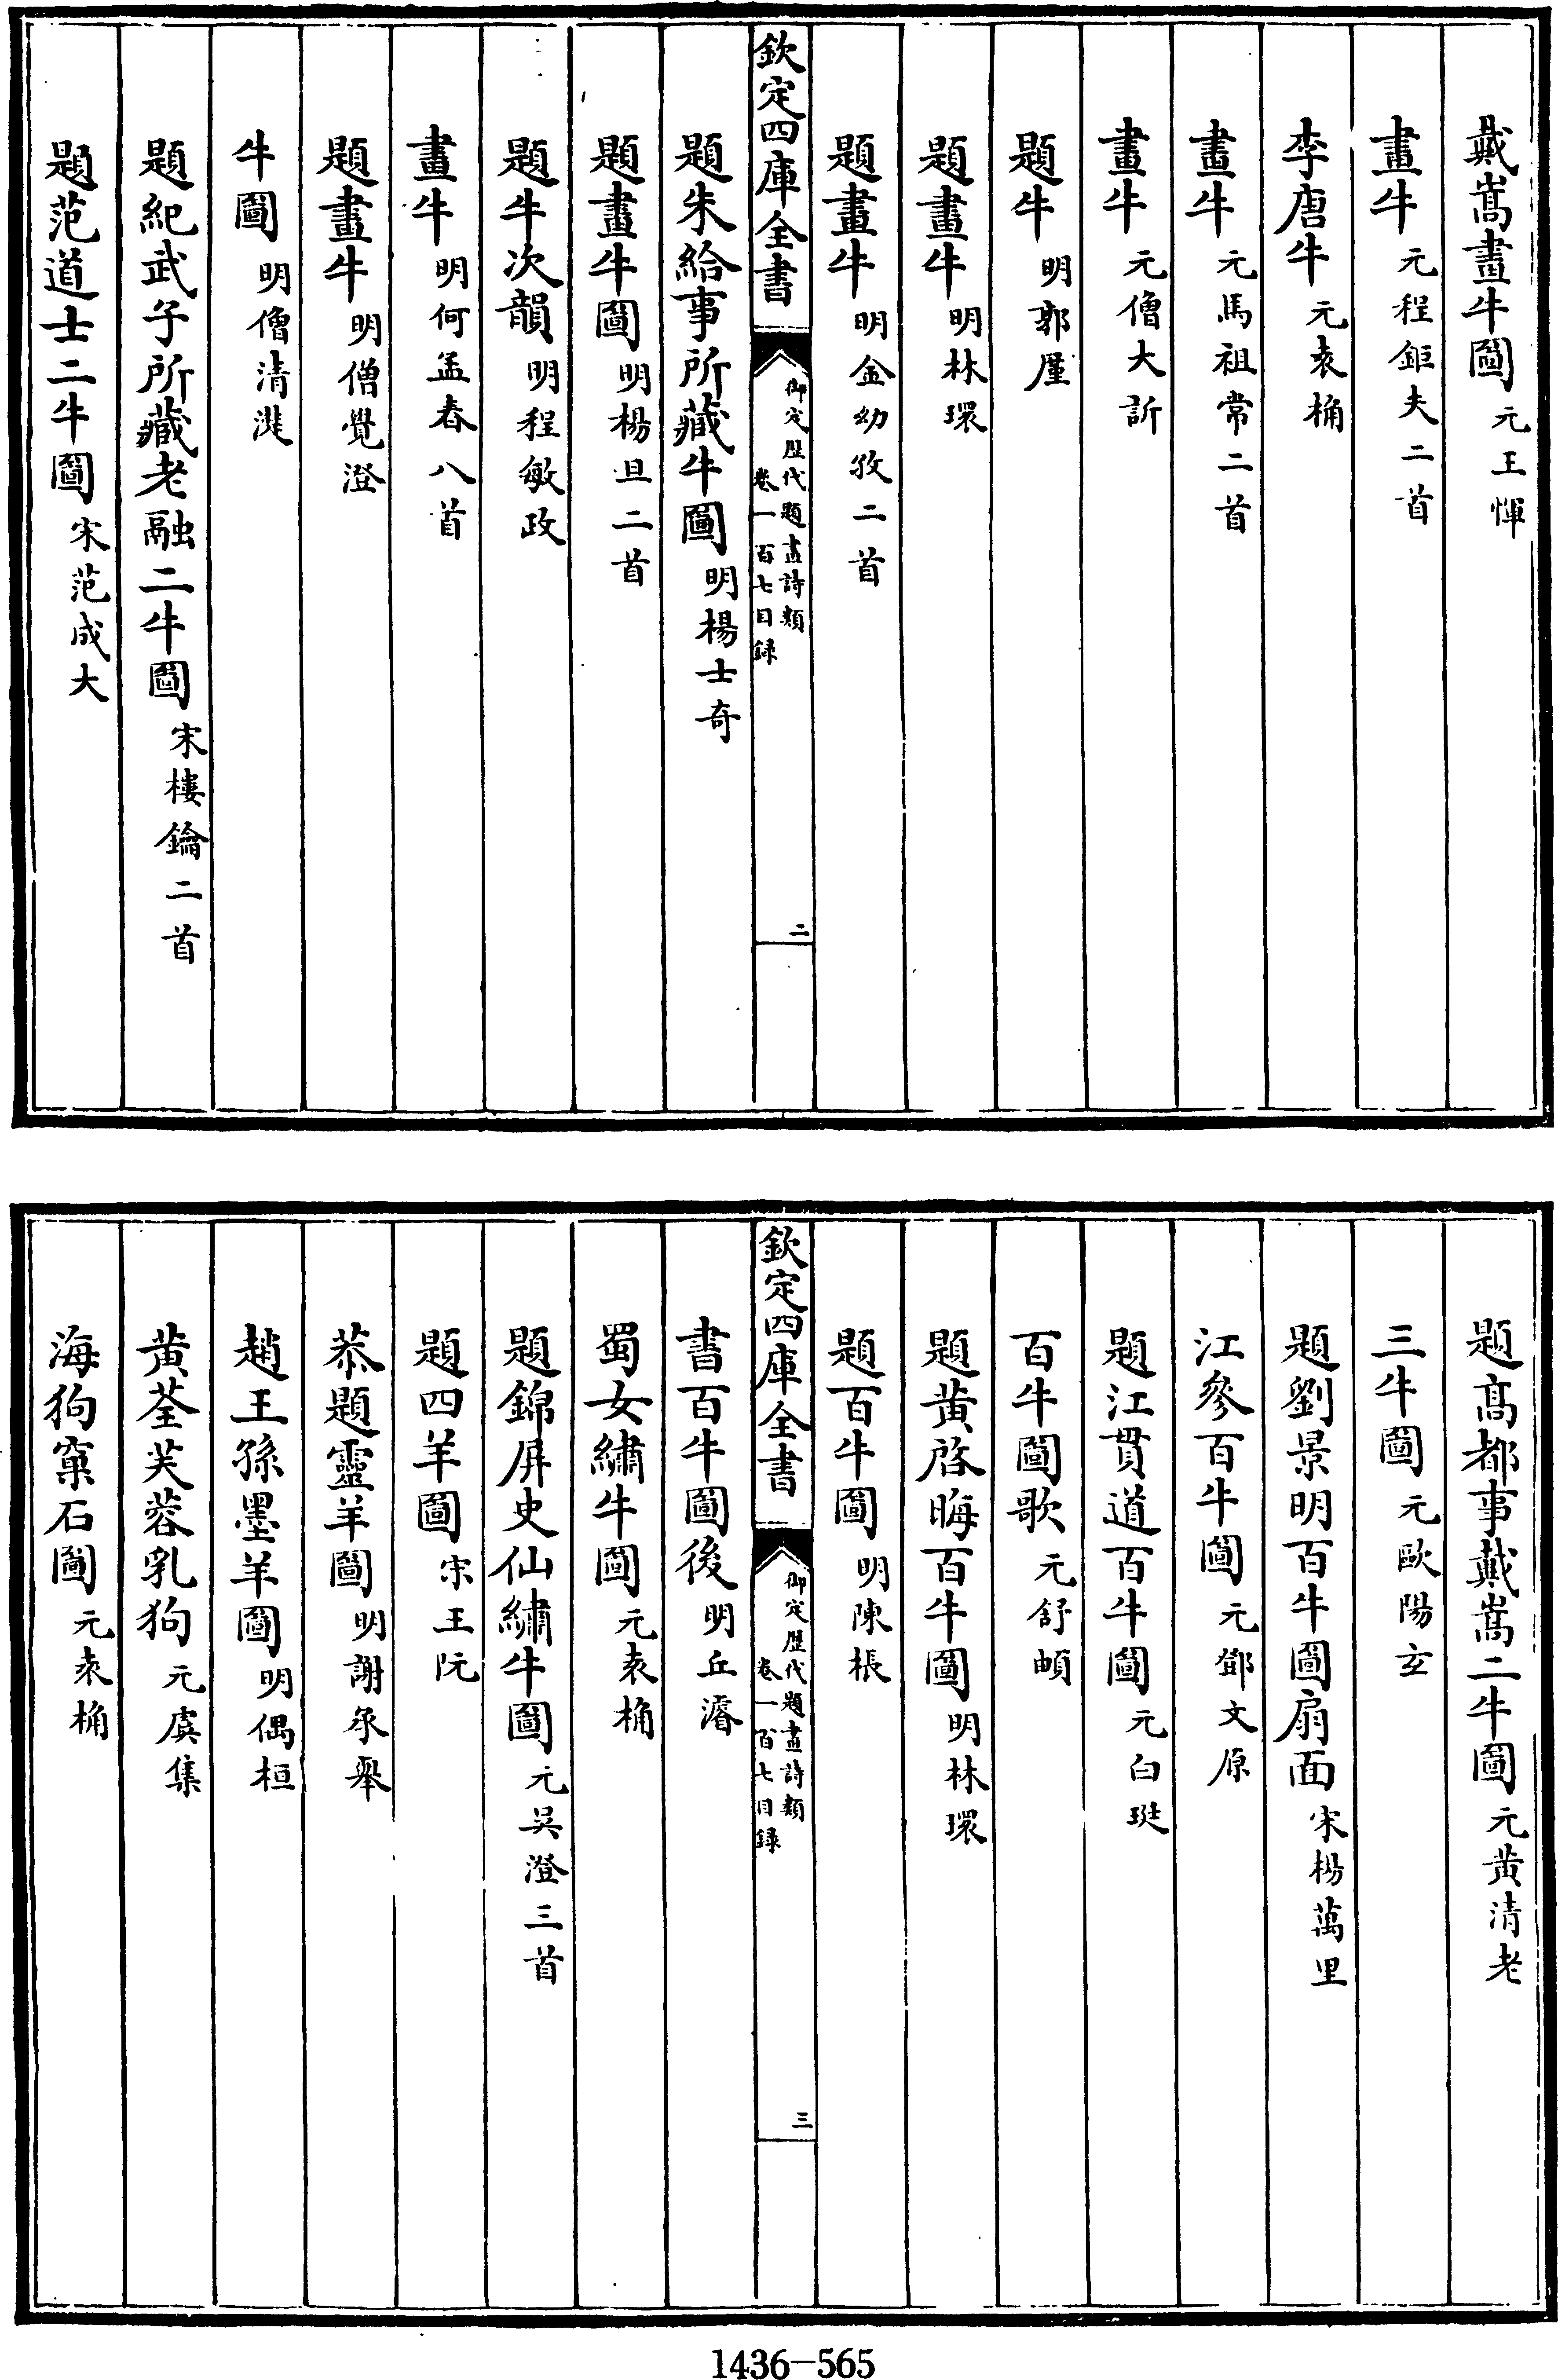 戴嵩畫牛圖元王惲
畫牛元程鉅夫二首
李唐牛元袁桷
畫牛元馬祖常二首
畫牛元僧大訢
題牛明郭廑
題畫牛明林環
題畫牛明金幼孜二首
欽定四庫全書
御定歴代題畫詩類
卷一百七目録
二
題朱給事所藏牛圖明楊士奇
題畫牛圖明楊旦二首
題牛次韻明程敏政
畫牛明何孟春八首
題畫牛明僧覺澄
牛圖明僧清濋
題紀武子所藏老融二牛圖宋樓鑰二首
題范道士二牛圖宋范成大
題髙都事戴嵩二牛圖元黄清老
三牛圖元歐陽玄
題劉景明百牛圖扇面宋楊萬里
江參百牛圖元鄧文原
題江貫道百牛圖元白珽
百牛圖歌元舒頔
題黄啓晦百牛圖明林環
題百牛圖明陳棖
欽定四庫全書
御定歴代題畫詩類
卷一百七目録
三
書百牛圖後明丘濬
蜀女繡牛圖元袁桷
題錦屏史仙繡牛圖元吳澄三首
題四羊圖宋王阮
恭題靈羊圖明謝承舉
趙王孫墨羊圖明偶桓
黄荃芙蓉乳狗元虞集
海狗窠石圖元袁桷
1436-565